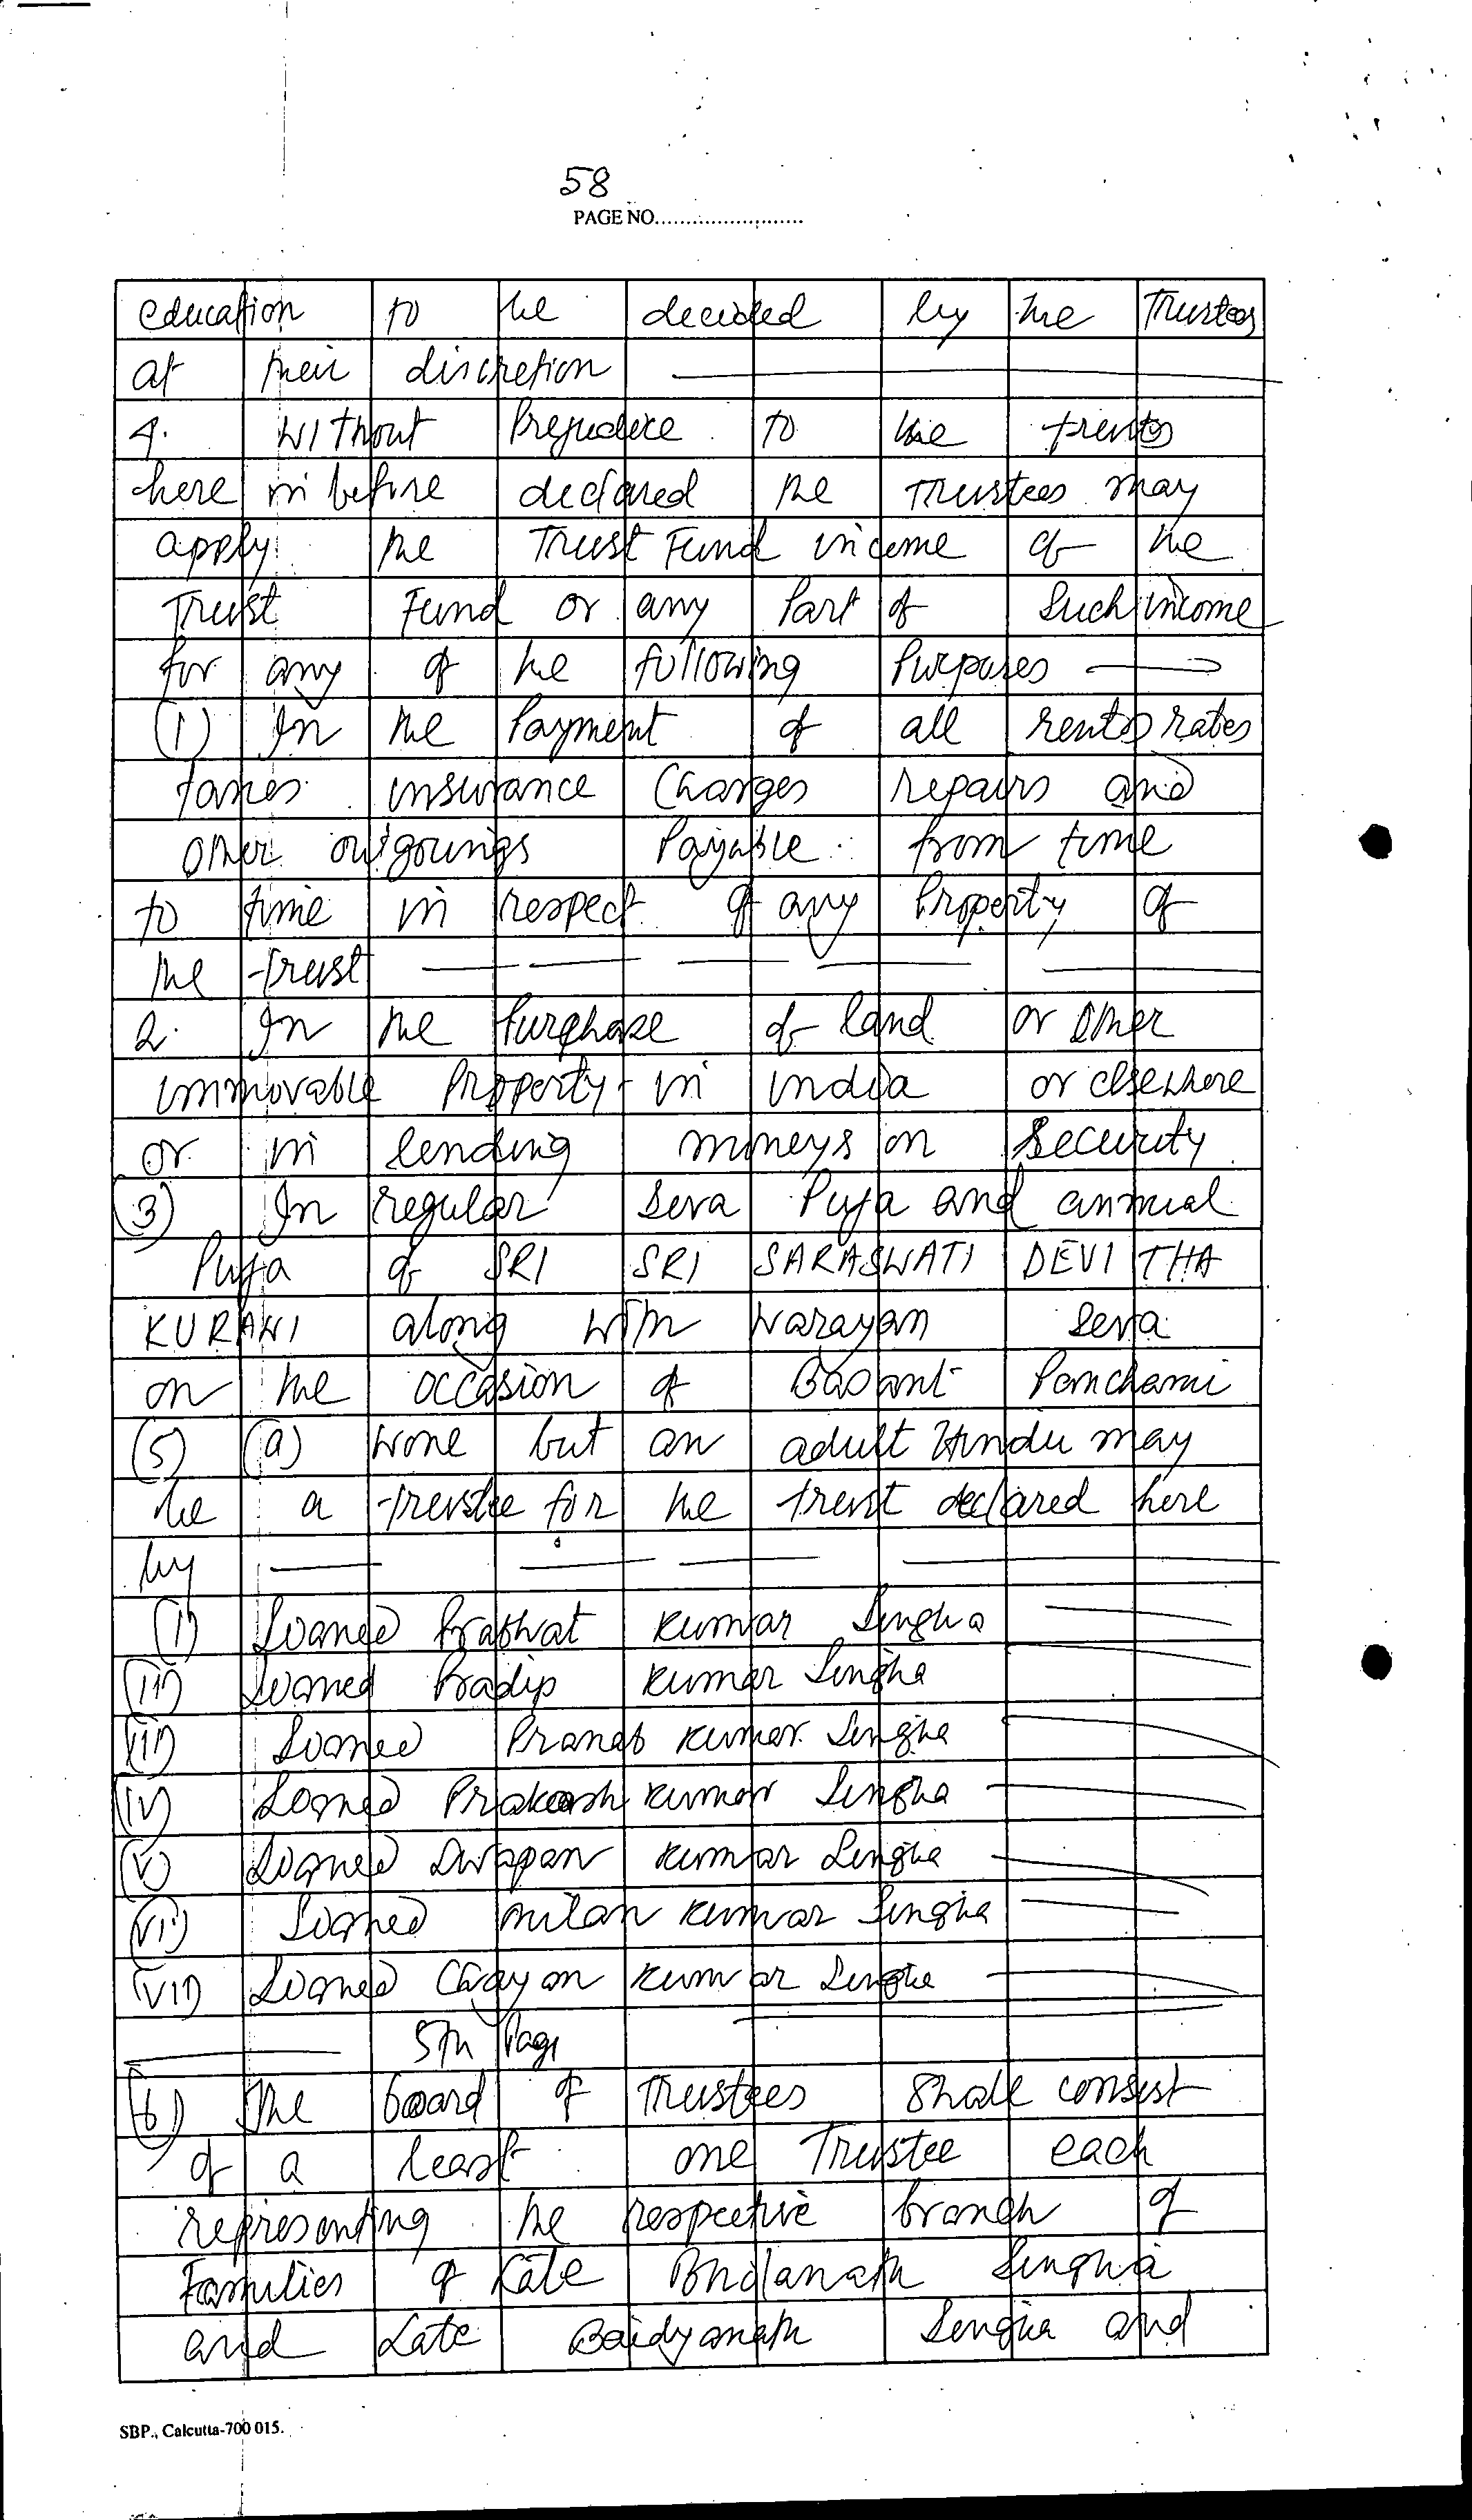 58
PAGE NO........................
education to be decided by the Trustees
at their discretion
4. without Prejudice to the trusts
here in before declared the Trustees may
apply the Trust Fund income of the
Trust Fund or any Part of Such income
for any of the following Purposes
(1) In the Payment of all rents rates
taxes insurance Charges repairs and
other outgoings Payable from time
to time in respect of any Property of
the trust
2. In the Purchase of land or other
immovable Property in india or elsewhere
or in lending moneys on Security
(3) In regular Seva Puja and annual
Puja of SRI SRI SARASWATI DEVI THA
KURANI along with Narayan Seva
on the occasion of Basant Panchami
(5) (a) None but an adult Hindu may
be a trustee for the trust declared here
by
(i) Signed Prabhat Kumar Singha
(ii) Signed Pradip Kumar Singha
(iii) Signed Pranab Kumar Singha
(iv) Signed Prakash Kumar Singha
(v) Signed Swapan Kumar Singha
(vi) Signed Milan Kumar Singha
(vii) Signed Kumar Singha
5th Page
(b) The board of Trustees Shall consist
of a least one Trustee each
representing the respective branch of
Families of Late Bholanath Singha
and Late Baidyanath Singha and
SBP., Calcutta-700 015.